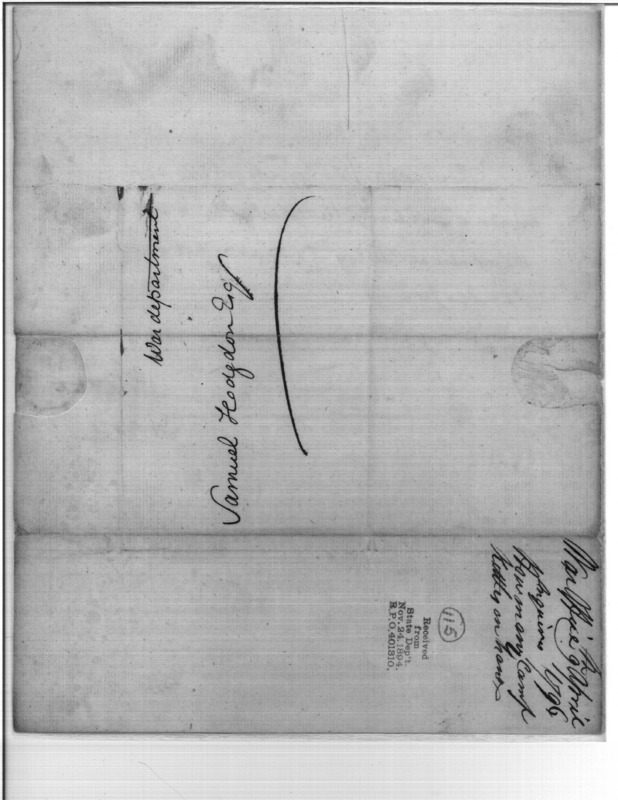 War department
Samuel Hodgdon Esq
War Office
9 April
1796
Enquiries
How many Camp
Kettles on hand
115
Received
from
State Dep't.
Nov. 24, 1894.
R.P.O. 401810.